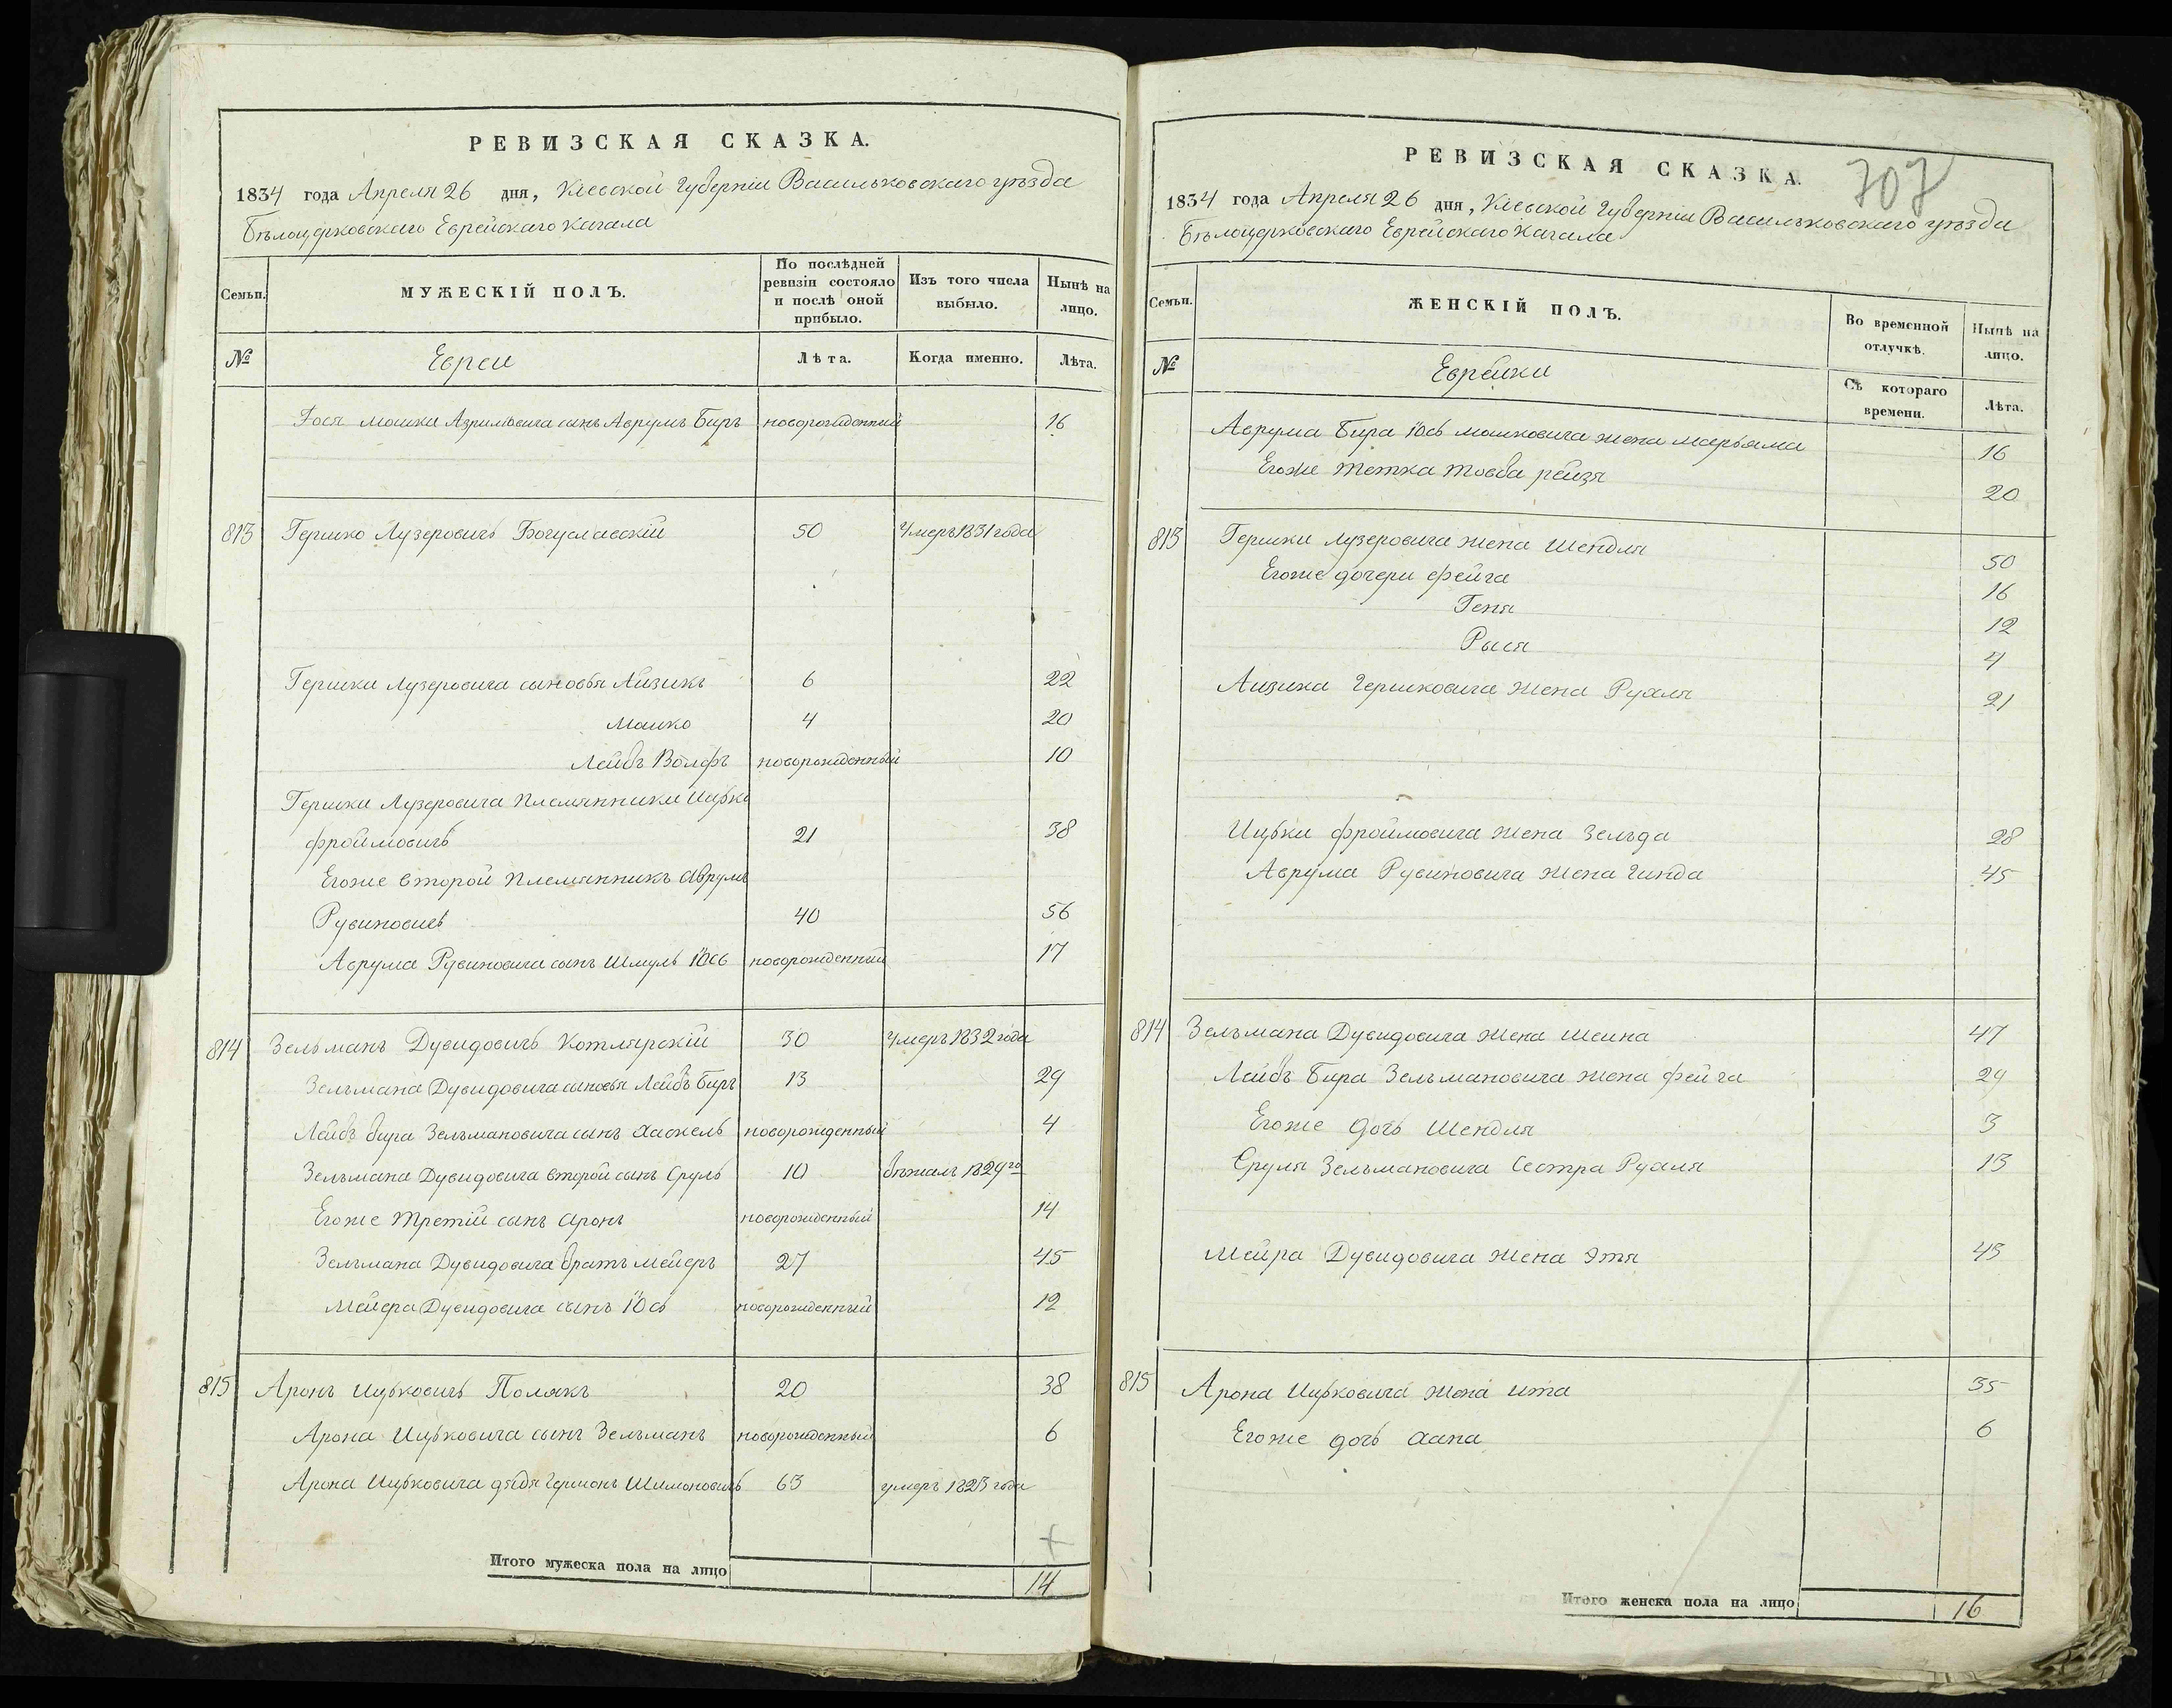 РЕВИЗСКАЯ СКАЗКА.
1834 года Апреля 26 дня, Кіевской Губерніи Васильковскаго уѣзда
Бѣлоцерковскаго Еврейскаго Кагала
Семьи.
МУЖЕСКІЙ ПОЛЪ.
По послѣдней ревизіи состояло и послѣ оной прибыло.
Изъ того числа выбыло.
Ныпѣ на лицо.
№
Евреи
Лѣта.
Когда именно.
Лѣта.
Мошки Азрилевича сынъ Аврумъ Биръ новорожденный 16
813 Гершко Лузеровичъ Богуславскій 50 Умеръ 1831 года
Гершки Лузеровича сыновья Айзикъ 6 22
Мошко 4 20
Лейбъ Волфъ новорожденный 10
Гершки Лузеровича племянники Ицько
Фроймовичъ 21 38
Егоже второй племянникъ Аврумъ
Рувиновичъ 40 56
Аврума Рувиновича сынъ Шмуль Іось новорожденный 17
814 Зельманъ Дувидовичъ Котлярскій 30 Умеръ 1832 года
Зельмана Дувидовича сыновья Лейбъ Биръ 13 29
Лейбъ Бира Зельмановича сынъ Хаскель новорожденный 4
Зельмана Дувидовича второй сынъ Сруль 10 бежалъ 1829 го
Егоже третій сынъ Аронъ новорожденный 14
Зельмана Дувидовича братъ Мейеръ 27 45
Мейера Дувидовича сынъ Іось новорожденный 12
815 Аронъ Ицьковичъ Полякъ 20 38
Арона Ицьковича сынъ Зельманъ новорожденный 6
Арона Ицьковича дядя Гершонъ Шимоновичъ 63 умеръ 1823 года
Итого мужеска пола на лицо 14
РЕВИЗСКАЯ СКАЗКА.
707
1834 года Апреля 26 дня, Кіевской Губерніи Васильковскаго уѣзда
Бѣлоцерковскаго Еврейскаго Кагала
Семьи.
ЖЕНСКІЙ ПОЛЪ.
Во временной отлучкѣ.
Нынѣ на лицо.
№
Еврейки
Съ котораго времени.
Лѣта.
Аврума Бира Іось Мошковича жена Марьяма 16
Егоже тетка Товба Рейзя 20
813 Гершки Лузеровича жена Шендля 50
Егоже дочери Фейга 16
Геня 12
Рыся 4
Айзика Гершковича жена Рухля 21
Ицьки Фроймовича жена Зельда 28
Аврума Рувиновича жена Гинда 45
814 Зельмана Дувидовича жена Шейна 47
Лейбъ Бира Зельмановича жена Фейга 29
Егоже дочь Шендля 3
Сруля Зельмановича сестра Рухля 13
Мейра Дувидовича жена Этя 43
815 Арона Ицьковича жена Ита 35
Егоже дочь Хана 6
Итого женска пола на лицо 16